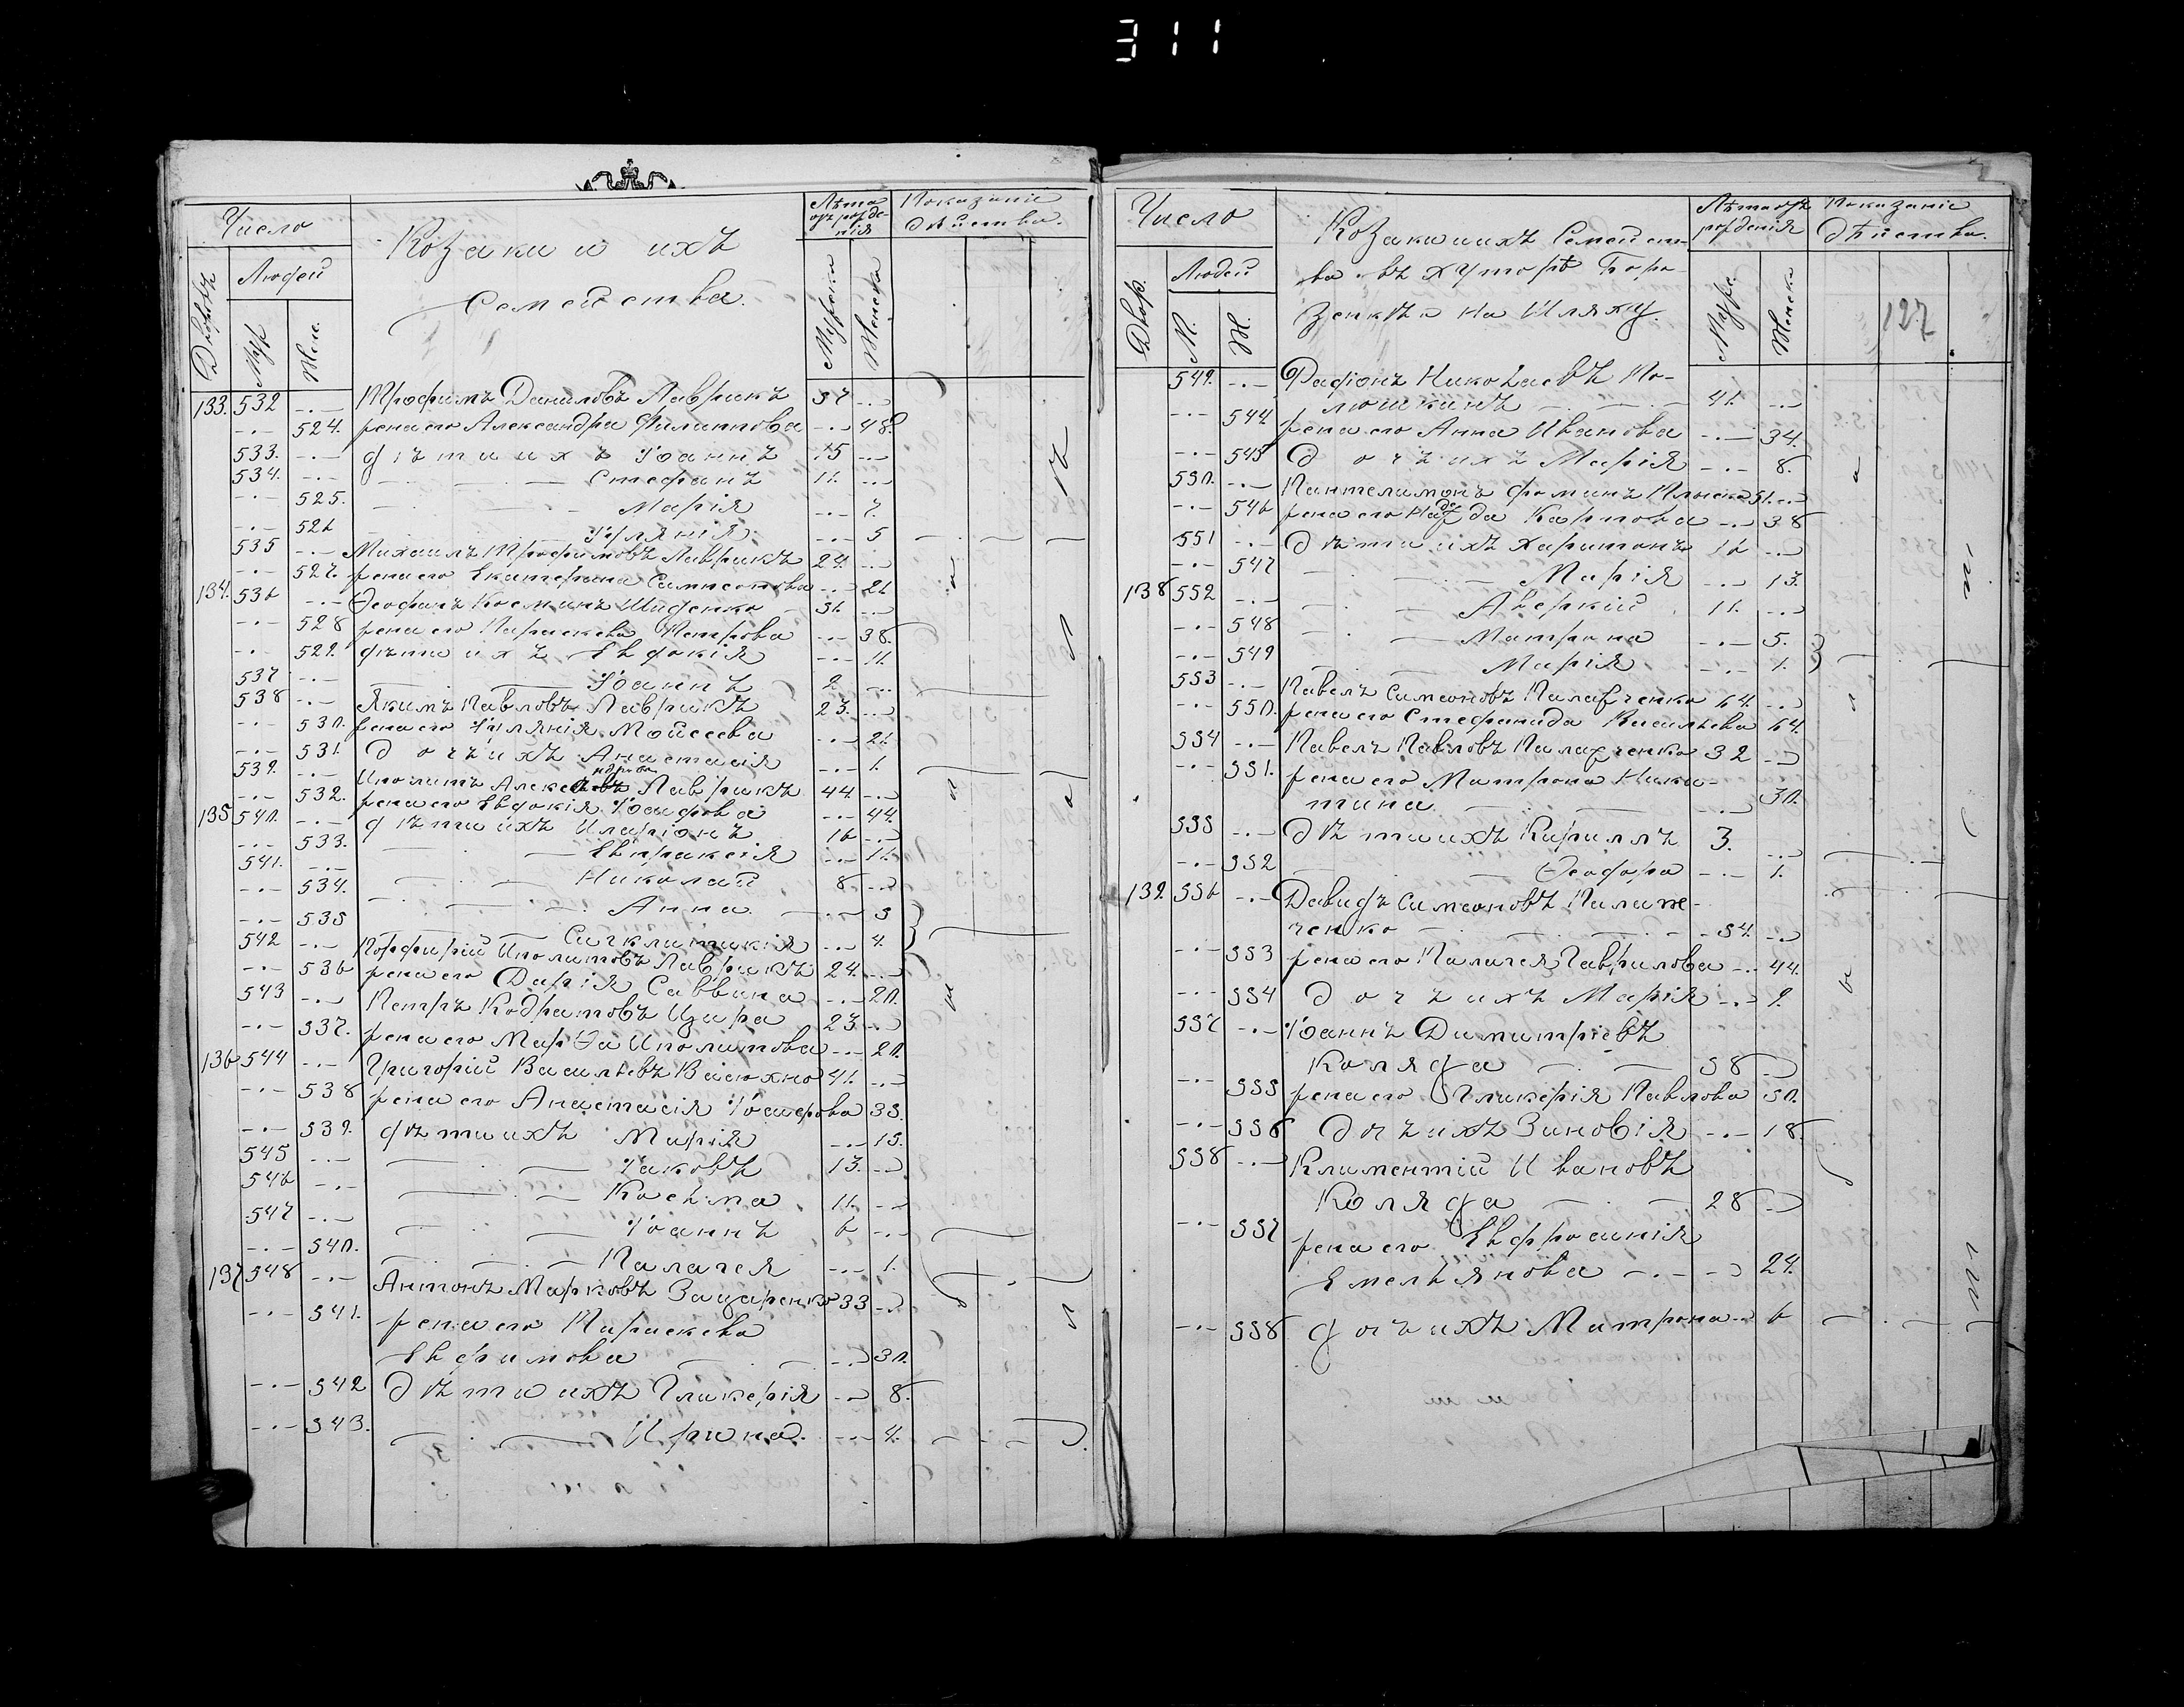 311
Число
Дворовъ
Людей
Муж
Жен.
Козаки и ихъ
Семейства.
Лѣта
отъ рожде-
нія
Мужеска
Женска
Показаніе
дѣйства.
133. 532 -.- Трофимъ Даниловъ Лаврикъ 57 -.-
-.- 524. жена его Александра Филиппова -.- 48.
533. -.- дѣти ихъ Іоаннъ 15 -.-
534. -.- Стефанъ 11. -.-
-.- 525. Марія -.- 7.
-.- 526 Іуліанія -.- 5
535 -.- Михаилъ Трофимовъ Лаврикъ 24. -.-
-.- 527. жена его Екатерина Сампсонова -.- 21
134. 536 -.- Ѳеофанъ Косминъ Шиденко 31. -.-
-.- 528 жена его Параскева Петрова -.- 38.
-.- 529. дѣти ихъ Евдокія -.- 11.
537 -.- Іоаннъ 2 -.-
538 -.- Якимъ Павловъ Лаврикъ 23. -.-
-.- 530. жена его Іуліянія Мойсеева -.- 21.
-.- 531. дочь ихъ Анастасія -.- 1.
539. -.- Иполитъ Александровъ Лаврикъ 44. -.-
-.- 532. жена его Евдокія Іоасифова -.- 44.
135 540. -.- дѣти ихъ Иларіонъ 16 -.-
-.- 533. Евпраксія -.- 11.
541. -.- Николай 8 -.-
-.- 534. Анна -.- 5
-.- 535 Сигклитикія -.- 4.
542 -.- Порфирій Иполитовъ Лаврикъ 24. -.-
-.- 536 жена его Дарія Саввина -.- 20.
543 -.- Петръ Кодратовъ Цира 23 -.-
-.- 537. жена его Марѳа Иполитова -.- 20.
136 544 -.- Григорій Васильевъ Васюхно 41. -.-
-.- 538 жена его Анастасія Іоасифова 35.
-.- 539. дѣти ихъ Марія -.- 15.
545 -.- Іаковъ 13. -.-
546 -.- Косьма 11. -.-
547 -.- Іоаннъ 6 -.-
-.- 540. Палагея -.- 1.
137 548 -.- Антонъ Марковъ Зацаренко 33 -.-
-.- 541. жена его Параскева
Евфимова -.- 30.
-.- 542 Дѣти ихъ Гликерія -.- 8.
-.- 543. Ирина. -.- 4.
Число
Двор.
Людей
М.
Ж.
Козаки и ихъ Семейст-
ва въ хуторѣ Боро-
зенкѣ и на Шляху.
Лѣта отъ
рожденія
Муже.
Женска
Показаніе
дѣйства.
127
549. -.- Родіонъ Николаевъ По-
люшкинъ 41. -.-
-.- 544 жена его Анна Иванова -.- 34.
-.- 545 Дочь ихъ Марія -.- 8.
550. -.- Пантелимонъ Фоминъ 51. -.-
-.- 546 жена его Надежда Карпова -.- 38
551 -.- Дѣти ихъ Харитонъ 16 -.-
-.- 547 Марія -.- 13.
138 552 -.- Аверкій 11. -.-
-.- 548 Матрона -.- 5.
-.- 549 Марія -.- 1.
553 -.- Павелъ Симеоновъ Палажченко 64. -.-
-.- 550. жена его Стефанида Васильева 64.
554 -.- Павелъ Павловъ Палажченко 32 -.-
-.- 551. жена его Матрона Ники-
тина -.- 30.
555 -.- Дѣти ихъ Кириллъ 3. -.-
-.- 552 Ѳеодора -.- 1.
139. 556 -.- Давидъ Симеоновъ Палаж-
ченко 54. -.-
-.- 553 жена его Палагея Гаврилова -.- 44.
-.- 554 Дочь ихъ Марія -.- 9.
557 -.- Іоаннъ Димитріевъ
Коляда 58 -.-
-.- 555 жена его Гликерія Павлова 50.
-.- 556 Дочь ихъ Зиновія -.- 18.
558 -.- Климентій Ивановъ
Коляда 28 -.-
-.- 557 жена его Евфросинія
Емельянова -.- 24.
-.- 558 дочь ихъ Матрона -.- 6